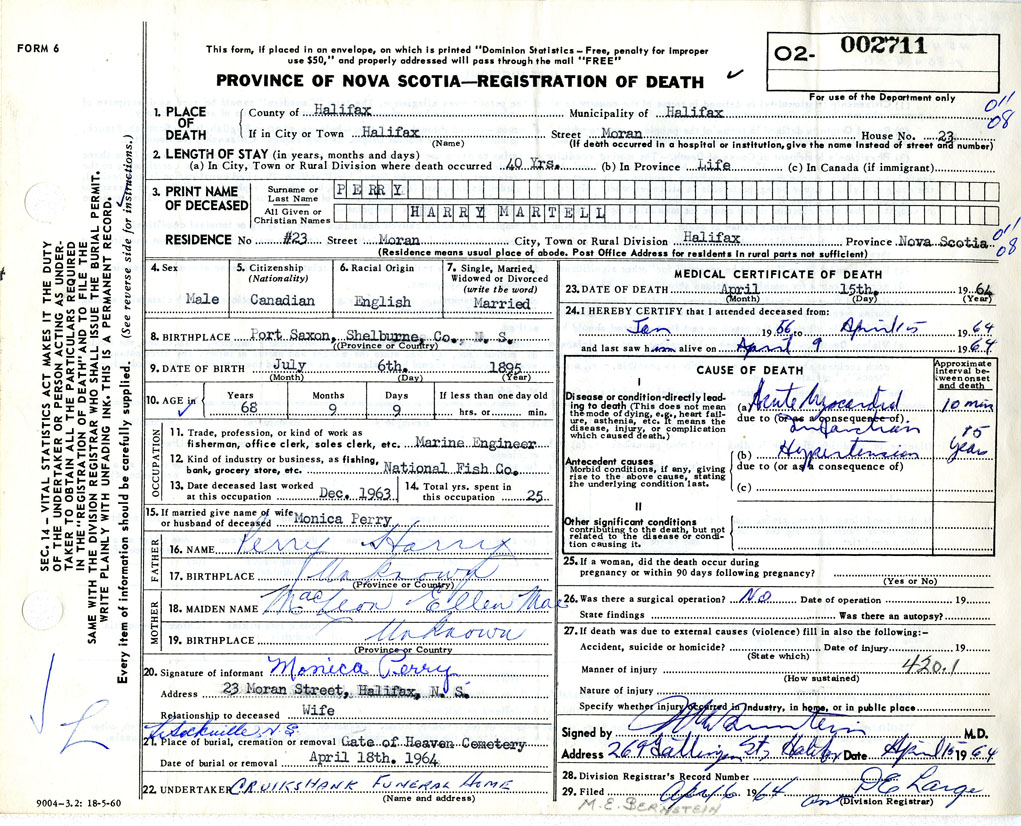 FORM 6
This form, if placed in an envelope, on which is printed "Dominion Statistics – Free, penalty for improper
use $50," and properly addressed will pass through the mail "FREE"
PROVINCE OF NOVA SCOTIA—REGISTRATION OF DEATH
O2- 002711
For use of the Department only
011
08
1. PLACE OF DEATH
County of Halifax Municipality of Halifax
If in City or Town Halifax Street Moran House No. 23
(Name) (If death occurred in a hospital or institution, give the name instead of street and number)
2. LENGTH OF STAY (in years, months and days)
(a) In City, Town or Rural Division where death occurred 40 Yrs. (b) In Province Life (c) In Canada (if immigrant)
3. PRINT NAME OF DECEASED
Surname or Last Name PERRY
All Given or Christian Names HARRY MARTELL
RESIDENCE No #23 Street Moran City, Town or Rural Division Halifax Province Nova Scotia
(Residence means usual place of abode. Post Office Address for residents in rural parts not sufficient)
011
08
4. Sex Male
5. Citizenship (Nationality) Canadian
6. Racial Origin English
7. Single, Married, Widowed or Divorced (write the word) Married
8. BIRTHPLACE Port Saxon, Shelburne, Co., N. S.
(Province or Country)
9. DATE OF BIRTH July 6th. 1895
(Month) (Day) (Year)
10. AGE in Years Months Days If less than one day old
68 9 9 hrs. or min.
OCCUPATION
11. Trade, profession, or kind of work as
fisherman, office clerk, sales clerk, etc. Marine Engineer
12. Kind of industry or business, as fishing,
bank, grocery store, etc. National Fish Co.
13. Date deceased last worked at this occupation Dec. 1963
14. Total yrs. spent in this occupation 25
15. If married give name of wife
or husband of deceased Monica Perry
FATHER
16. NAME Perry Harry
17. BIRTHPLACE Unknown
(Province or Country)
MOTHER
18. MAIDEN NAME Ellen Mae
19. BIRTHPLACE Unknown
(Province or Country
20. Signature of informant Monica Perry
Address 23 Moran Street, Halifax, N. S.
Relationship to deceased Wife
Sackville, N.S.
21. Place of burial, cremation or removal Gate of Heaven Cemetery
Date of burial or removal April 18th. 1964
22. UNDERTAKER CRUIKSHANK FUNERAL HOME
(Name and address)
9004–3.2: 18-5-60
MEDICAL CERTIFICATE OF DEATH
23. DATE OF DEATH April 15th. 1964
(Month) (Day) (Year)
24. I HEREBY CERTIFY that I attended deceased from:
Jan 1956 to April 15 1964
and last saw him alive on April 9 1964
CAUSE OF DEATH
Approximate interval between onset and death
I
Disease or condition-directly leading to death (This does not
mean the mode of dying, e.g., heart failure, asthenia, etc. It means the
disease, injury, or complication which caused death.)
(a) Acute Myocardial 10 min
due to (or as a consequence of) Infarction
(b) Hypertension 15 Years
due to (or as a consequence of)
(c)
Antecedent causes
Morbid conditions, if any, giving
rise to the above cause, stating
the underlying condition last.
II
Other significant conditions
contributing to the death, but not
related to the disease or condition causing it.
25. If a woman, did the death occur during
pregnancy or within 90 days following pregnancy?
(Yes or No)
26. Was there a surgical operation? No Date of operation 19
State findings Was there an autopsy?
27. If death was due to external causes (violence) fill in also the following:–
Accident, suicide or homicide? Date of injury 19
(State which)
Manner of injury 420.1
(How sustained)
Nature of injury
Specify whether injury occurred in industry, in home, or in public place
Signed by M.D.
Address 269 St, Halifax Date April 15 1964
28. Division Registrar's Record Number
29. Filed 1964 D E Large
(Division Registrar)
M.E. BERNSTEIN
SEC. 14 – VITAL STATISTICS ACT MAKES IT THE DUTY
OF THE UNDERTAKER OR PERSON ACTING AS UNDER-
TAKER TO OBTAIN ALL THE PARTICULARS REQUIRED
IN THE "REGISTRATION OF DEATH" AND TO FILE THE
SAME WITH THE DIVISION REGISTRAR WHO SHALL ISSUE THE BURIAL PERMIT.
WRITE PLAINLY WITH UNFADING INK. THIS IS A PERMANENT RECORD.
Every item of information should be carefully supplied. (See reverse side for instructions.)